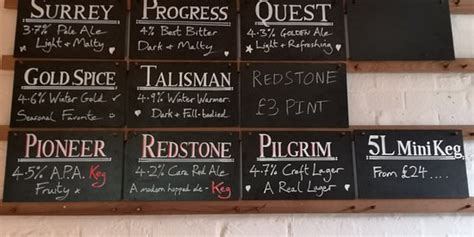 SURREY
3.7% Pale Ale
Light & Malty
PROGRESS
4% Best Bitter
Dark & Malty
QUEST
4.3% GOLDEN ALE
Light & Refreshing
GOLD SPICE
4.6% Winter Gold
Seasonal Favorite
TALISMAN
4.9% Winter Warmer
Dark & Full-bodied
REDSTONE
£3 PINT
PIONEER
4.5% A.P.A. Keg
Fruity
REDSTONE
4.2% Cara Red Ale
A modern hopped ale - Keg
PILGRIM
4.7% Craft Lager
A Real Lager
5L Mini Keg
From £24.....